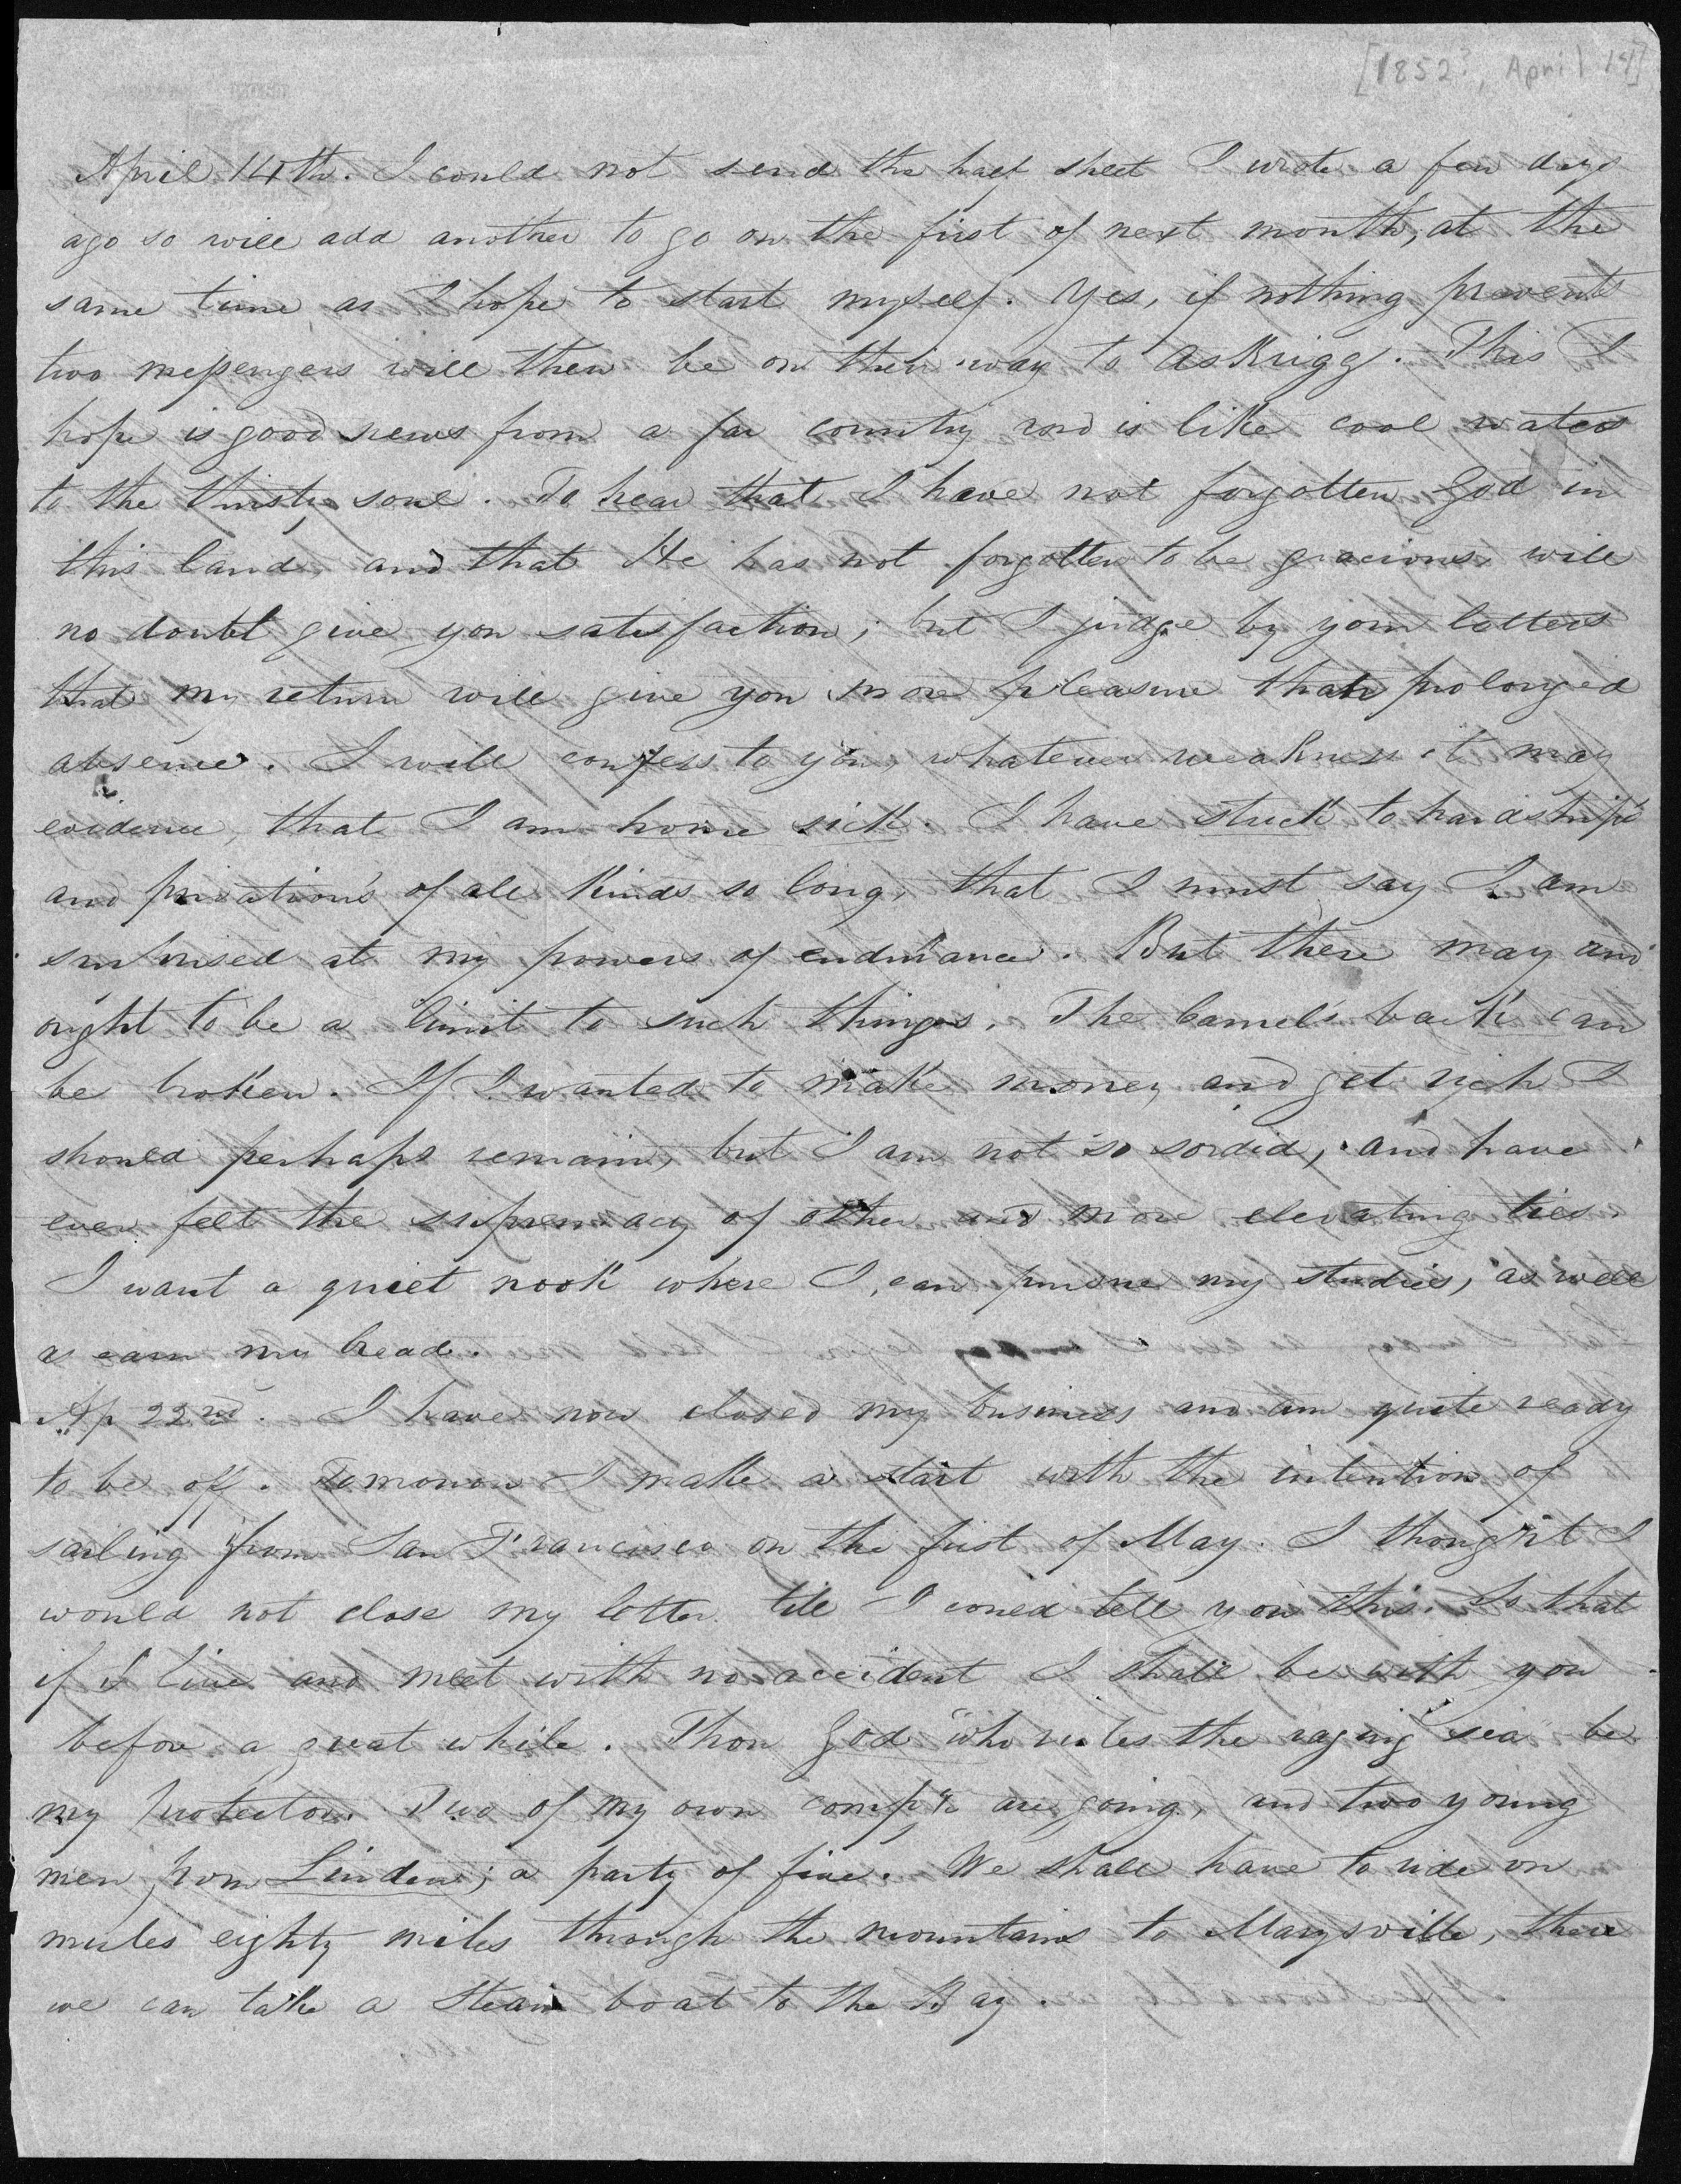 [1852?, April 14]
April 14th. I could not send the half sheet I wrote a few days
ago so will add another to go on the first of next month, at the
same time as I hope to start myself. Yes, if nothing prevents
two messengers will then be on their way to Askrigg. This I
hope is good news from a far country and is like cool waters
to the thirsty soul. To hear that I have not forgotten God in
this land and that He has not forgotten to be gracious, will
no doubt give you satisfaction; but I judge by your letters
that my return will give you more pleasure than prolonged
absence. I will confess to you, whatever weakness it may
evidence, that I am home sick. I have stuck to hardships
and privations of all kinds so long, that I must say I am
surprised at my powers of endurance. But there may and
ought to be a limit to such things. The Camel's back can
be broken. If I wanted to make money and get rich I
should perhaps remain, but I am not so sordid, and have
ever felt the supremacy of other and more elevating ties.
I want a quiet nook where I can pursue my studies, as well
as earn my bread.
Ap 22nd. I have now closed my business and am quite ready
to be off. Tomorrow I make a start with the intention of
sailing from San Francisco on the first of May. I thought I
would not close my letter till I could tell you this. So that
if I live and meet with no accident I shall be with you
before a great while. Thou God "who rules the raging sea" be
my protector. Two of my own comp'y are going, and two young
men from Linden; a party of five. We shall have to ride on
mules eighty miles through the mountains to Marysville, there
we can take a Steam boat to the Bay.